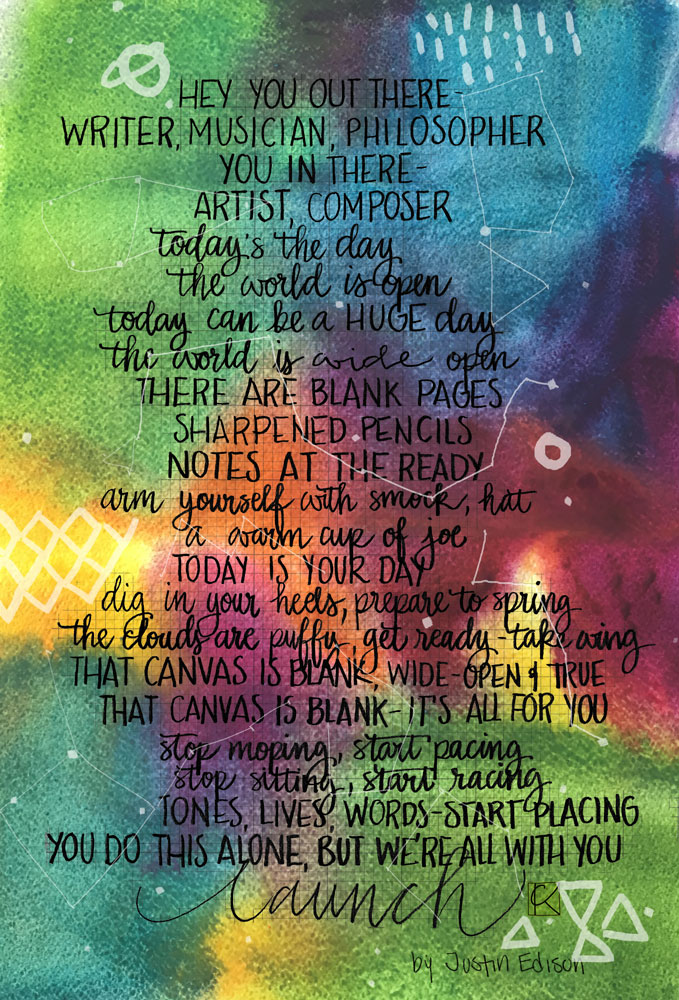 HEY YOU OUT THERE-
WRITER, MUSICIAN, PHILOSOPHER
YOU IN THERE-
ARTIST, COMPOSER
today's the day
the world is open
today can be a HUGE day
the world is wide open
THERE ARE BLANK PAGES
SHARPENED PENCILS
NOTES AT THE READY
arm yourself with smock, hat
a warm cup of joe
TODAY IS YOUR DAY
dig in your heels, prepare to spring
the clouds are puffy, get ready-take wing
THAT CANVAS IS BLANK, WIDE-OPEN & TRUE
THAT CANVAS IS BLANK-IT'S ALL FOR YOU
stop moping, start pacing
stop sitting, start racing
TONES, LIVES, WORDS-START PLACING
YOU DO THIS ALONE, BUT WE'RE ALL WITH YOU
launch
by Justin Edison